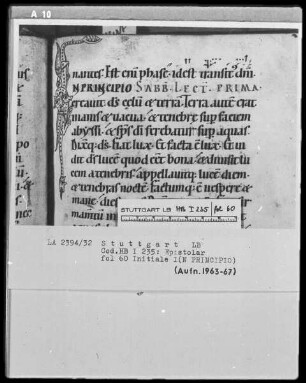 A 10
nantes. Est eni phase. idest transit dni
N PRINCIPIO SABB. LECT. PRIMA.
creauit ds celu & terra. Terra aute erat
inanis & uacua. & tenebre sup faciem
abyssi. & sps di ferebatur sup aquas.
Dixq; ds. fiat lux. Et facta e lux. Et ui
dit ds lucem quod eet bona. & diuisit lu
cem a tenebris. appellauitq; lucem diem.
& tenebras nocte. Factumq; e uespere &
mane di
STUTTGART LB HB I 235 fol 60
LA 2394/32 Stuttgart LB
Cod.HB I 235: Epistolar
fol 60 Initiale I(N PRINCIPIO)
(Aufn. 1963-67)